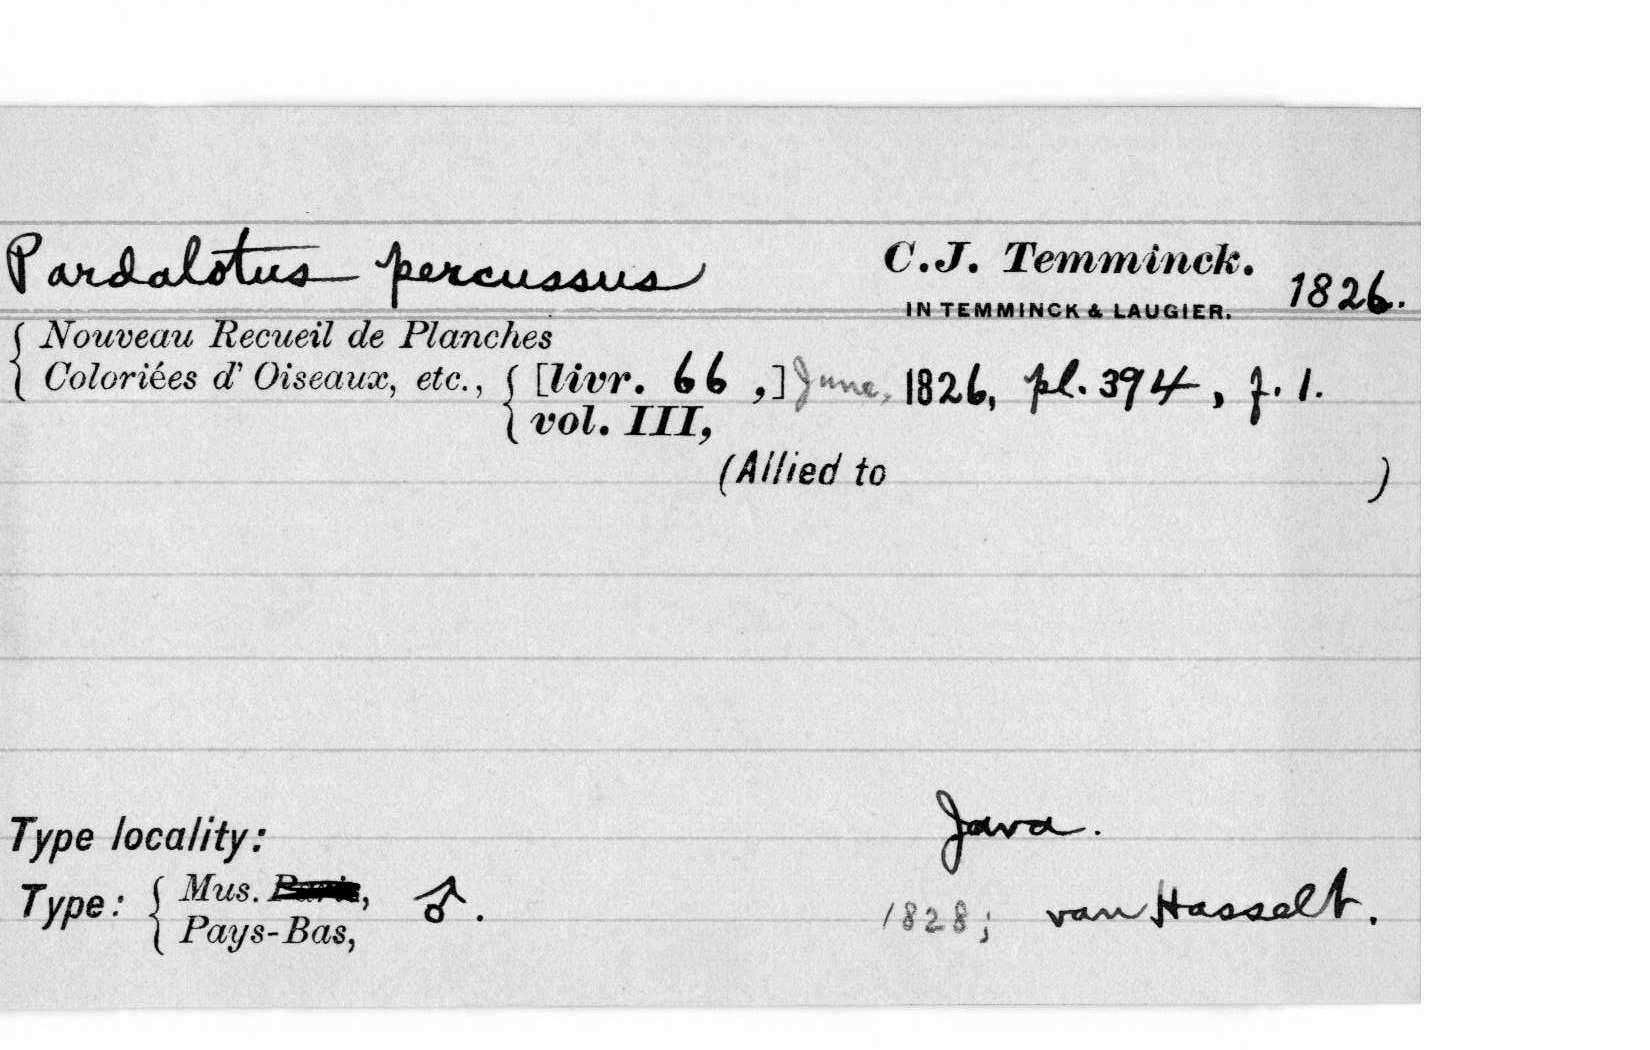 Pardalotus percussus C.J. Temminck. 1826.
IN TEMMINCK & LAUGIER.
{ Nouveau Recueil de Planches
{ Coloriées d' Oiseaux, etc., { [livr. 66 ,] June, 1826, pl. 394, f. 1.
{ vol. III,
(Allied to )
Type locality: Java.
Type: { Mus. Paris, ♂. 1828; van Hasselt.
{ Pays-Bas,